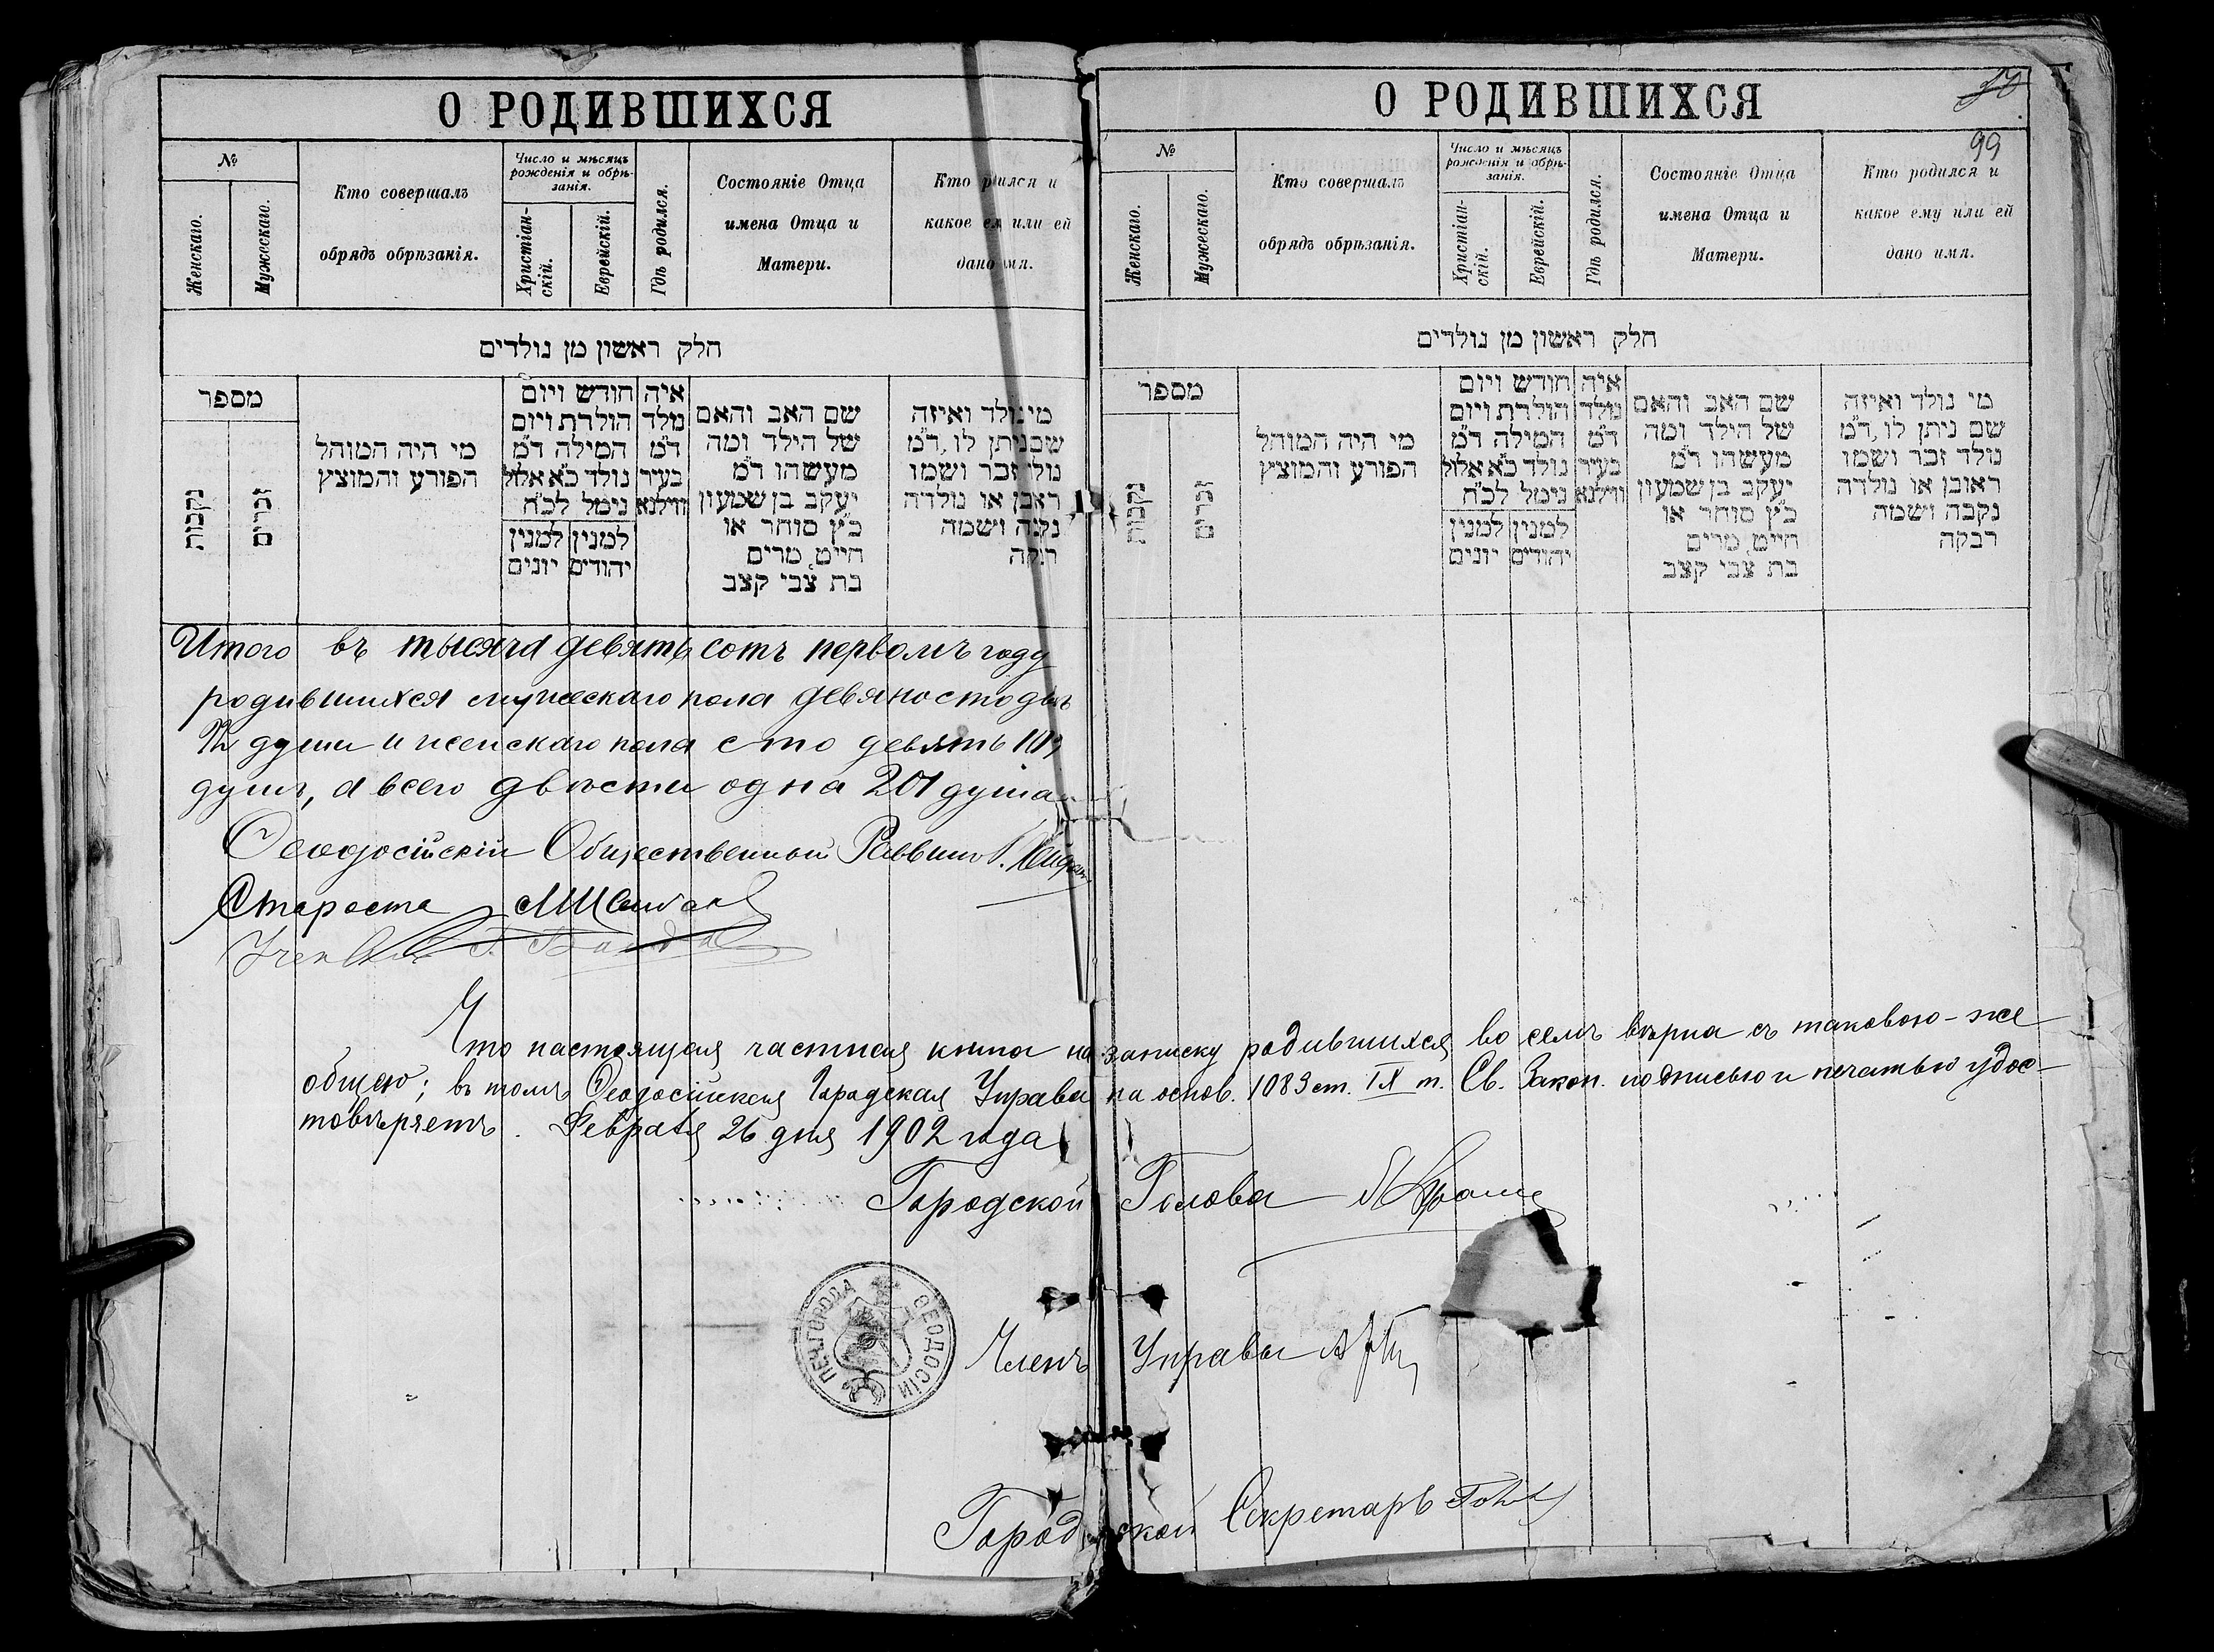 О РОДИВШИХСЯ
№
Женскаго.
Мужескаго.
Кто совершалъ
обрядъ обрѣзанія.
Число и мѣсяцъ
рожденія и обрѣ-
занія.
Христіан-
скій.
Еврейскій.
Гдѣ родился.
Состояніе Отца
имена Отца и
Матери.
Кто родился и
какое ему или ей
дано имя.
חלק ראשון מן נולדים
מספר
נקבות
זכרים
מי היה המוהל
הפורע והמוצץ
חודש ויום
הולדת ויום
המילה ד״מ
נולד כ״א אלול
נימל לכ״ח
למנין יהודים
למנין יונים
איה
נולד
ד״מ
בעיר
ווילנא
שם האב והאם
של הילד ומה
מעשהו ד״מ
יעקב בן שמעון
כ״ץ סוחר או
חייט, מרים
בת צבי קצב
מי נולד ואיזה
שם ניתן לו, ד״מ
נולד זכר ושמו
ראובן או נולדה
נקבה ושמה
רבקה
Итого въ тысяча девятьсотъ первомъ году
родившихся мужескаго пола девяносто двѣ
душы и женскаго пола сто девять 109
душъ, а всего двѣсти одна 201 душа
Ѳеодосійскій Общественный Раввинъ
Староста
Что настоящая частная книга на записку родившихся во всемъ вѣрна съ таковою-же
общею; въ томъ Ѳеодосійская Городская Управа на основ. 1083 ст. IX т. Св. Закон. подписью и печатью удос-
товѣряетъ. Февраля 26 дня 1902 года
Городской Голова
ПЕЧ. ГОРОДА ѲЕОДОСІИ
Членъ Управы
Городской Секретарь
О РОДИВШИХСЯ
99
№
Женскаго.
Мужескаго.
Кто совершалъ
обрядъ обрѣзанія.
Число и мѣсяцъ
рожденія и обрѣ-
занія.
Христіан-
скій.
Еврейскій.
Гдѣ родился.
Состояніе Отца
имена Отца и
Матери.
Кто родился и
какое ему или ей
дано имя.
חלק ראשון מן נולדים
מספר
נקבות
זכרים
מי היה המוהל
הפורע והמוצץ
חודש ויום
הולדת ויום
המילה ד״מ
נולד כ״א אלול
נימל לכ״ח
למנין יהודים
למנין יונים
איה
נולד
ד״מ
בעיר
ווילנא
שם האב והאם
של הילד ומה
מעשהו ד״מ
יעקב בן שמעון
כ״ץ סוחר או
חייט, מרים
בת צבי קצב
מי נולד ואיזה
שם ניתן לו, ד״מ
נולד זכר ושמו
ראובן או נולדה
נקבה ושמה
רבקה